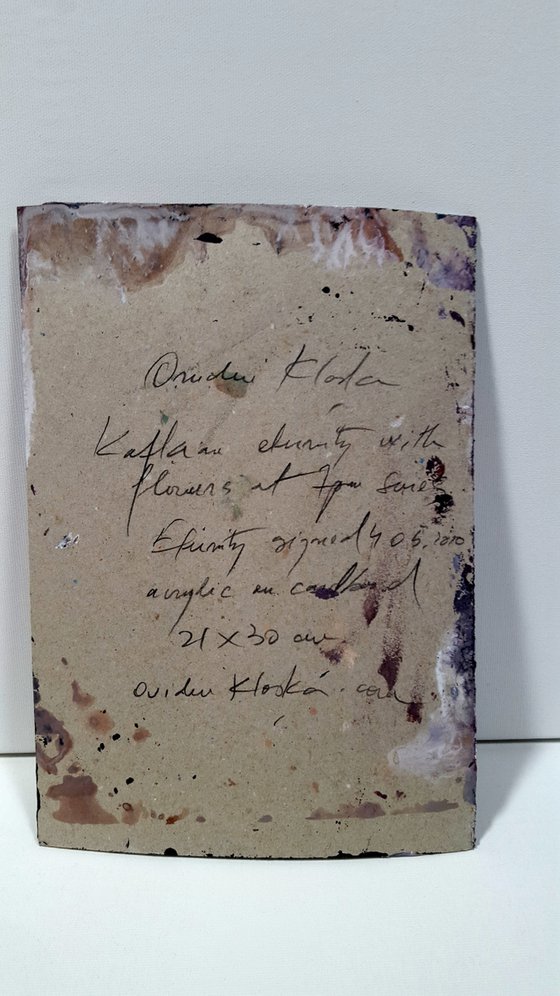 Ovidiu Kloska
Kafkian eturnity with
flowers at 7pm
Eturnity signed 05.2020
acrylic on cardboard
21 X 30 cm
ovidiu Kloska . com